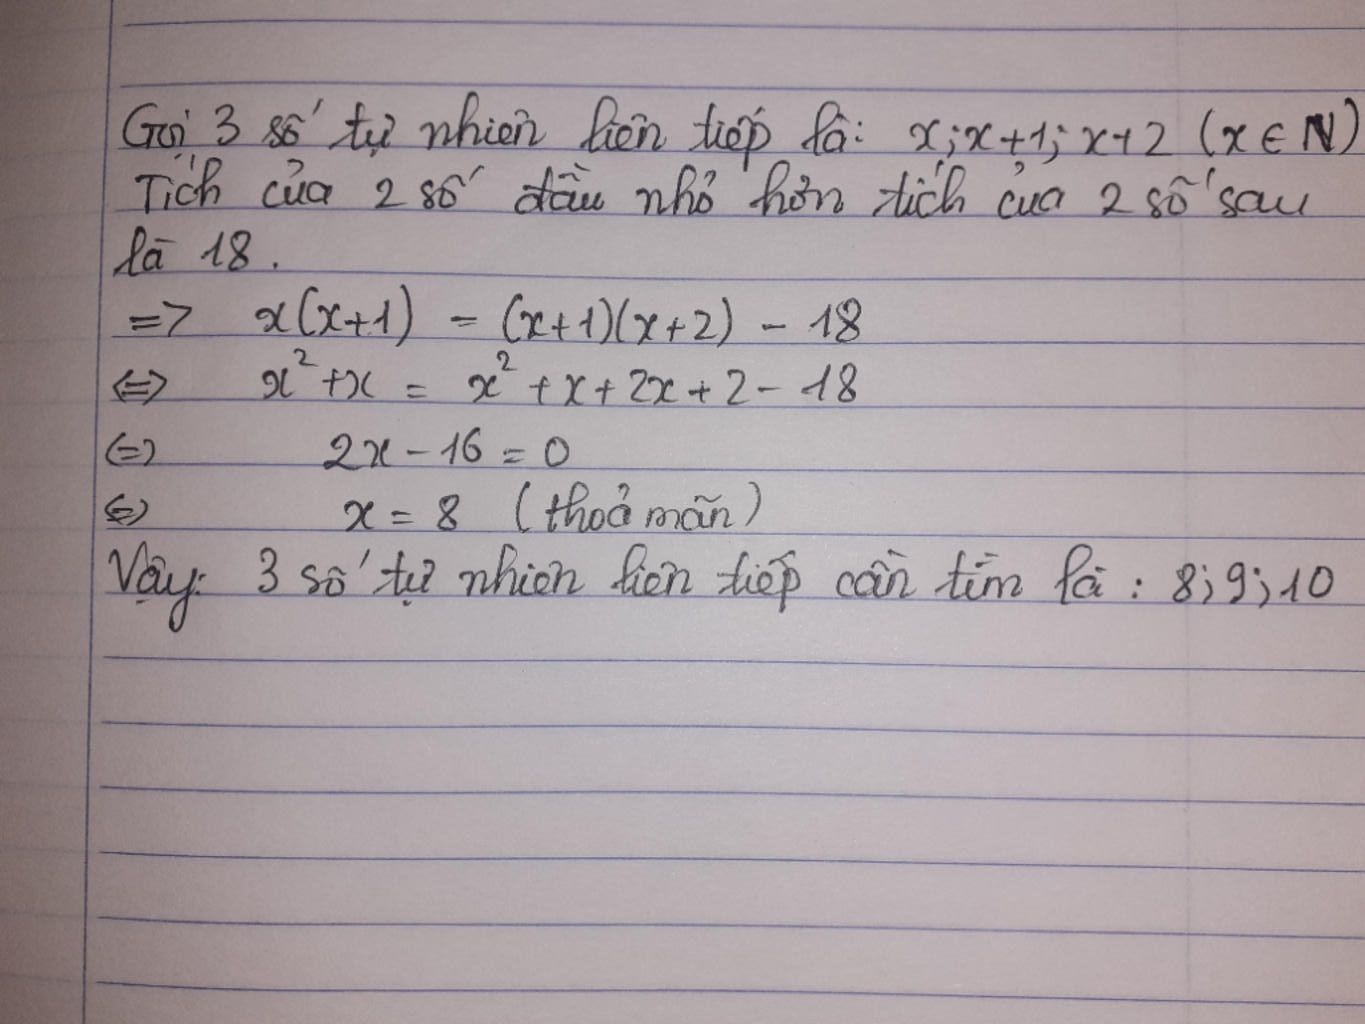 Gọi 3 số tự nhiên liên tiếp là: x; x+1; x+2 (x ∈ N)
Tích của 2 số đầu nhỏ hơn tích của 2 số sau
là 18.
=> x(x+1) = (x+1)(x+2) - 18
<=> x² + x = x² + x + 2x + 2 - 18
<=> 2x - 16 = 0
<=> x = 8 (thoả mãn)
Vậy: 3 số tự nhiên liên tiếp cần tìm là: 8; 9; 10